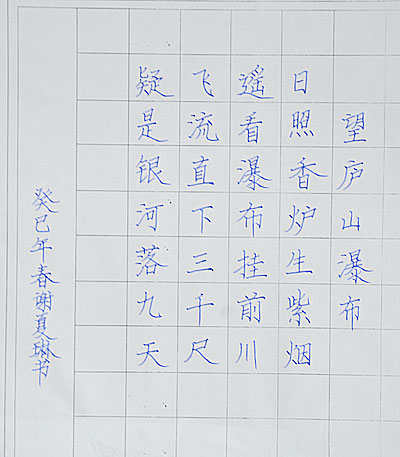 望庐山瀑布
日照香炉生紫烟
遥看瀑布挂前川
飞流直下三千尺
疑是银河落九天
癸巳年春谢夏琳书